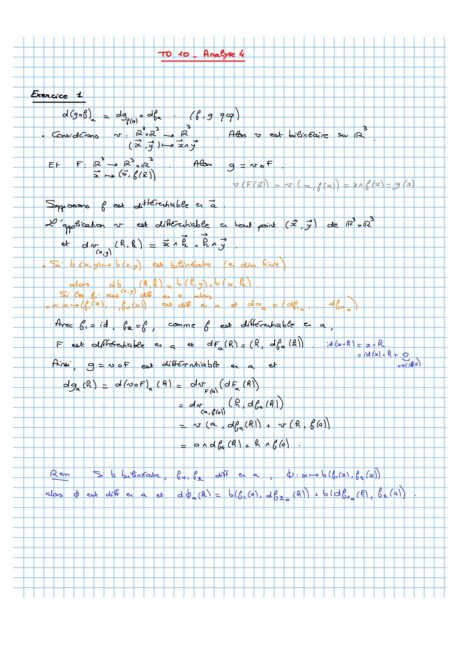 TD 10 - Analyse 4
Exercice 1
d(g∘f)_a = dg_{f(a)} ∘ df_a . (f, g qcp)
• Considérons v : ℝ³×ℝ³ → ℝ³ Alors v est bilinéaire sur ℝ³
(x⃗, y⃗) ↦ x⃗∧y⃗
Et F : ℝ³ → ℝ³×ℝ³ Alors g = v∘F .
x⃗ ↦ (x⃗, f(x⃗))
v(F(x⃗)) = v(x, f(x)) = x∧f(x) = g(x)
Supposons f est différentiable en a⃗ .
L'application v est différentiable en tout point (x⃗, y⃗) de ℝ³×ℝ³
et dv_{(x,y)} (h, k) = x⃗∧k⃗ + h⃗∧y⃗
• Si b(x,y) ↦ b(x,y) est bilinéaire (en dim finie)
alors db_{(x,y)} (h,k) = b(h,y) + b(x,k)
Si f₁, f₂ sont diff en a alors
• m: x ↦ (f₁(x), f₂(x)) est diff en a et dm_a = (df₁_a, df₂_a)
Avec f₁ = id, f₂ = f, comme f est différentiable en a,
F est différentiable en a et dF_a(h) = (h, df_a(h)) . id(x+h) = x+h
= id(x) + h + 0
Ainsi, g = v∘F est différentiable en a et
dg_a(h) = d(v∘F)_a (h) = dv_{F(a)} (dF_a(h))
= dv_{(a, f(a))} (h, df_a(h))
= v(a, df_a(h)) + v(h, f(a))
= a∧df_a(h) + h∧f(a) .
Rem Si b bilinéaire, f₁, f₂ diff en a, ϕ : x ↦ b(f₁(x), f₂(x))
alors ϕ est diff en a et dϕ_a(h) = b(f₁(a), df₂_a(h)) + b(df₁_a(h), f₂(a)) .